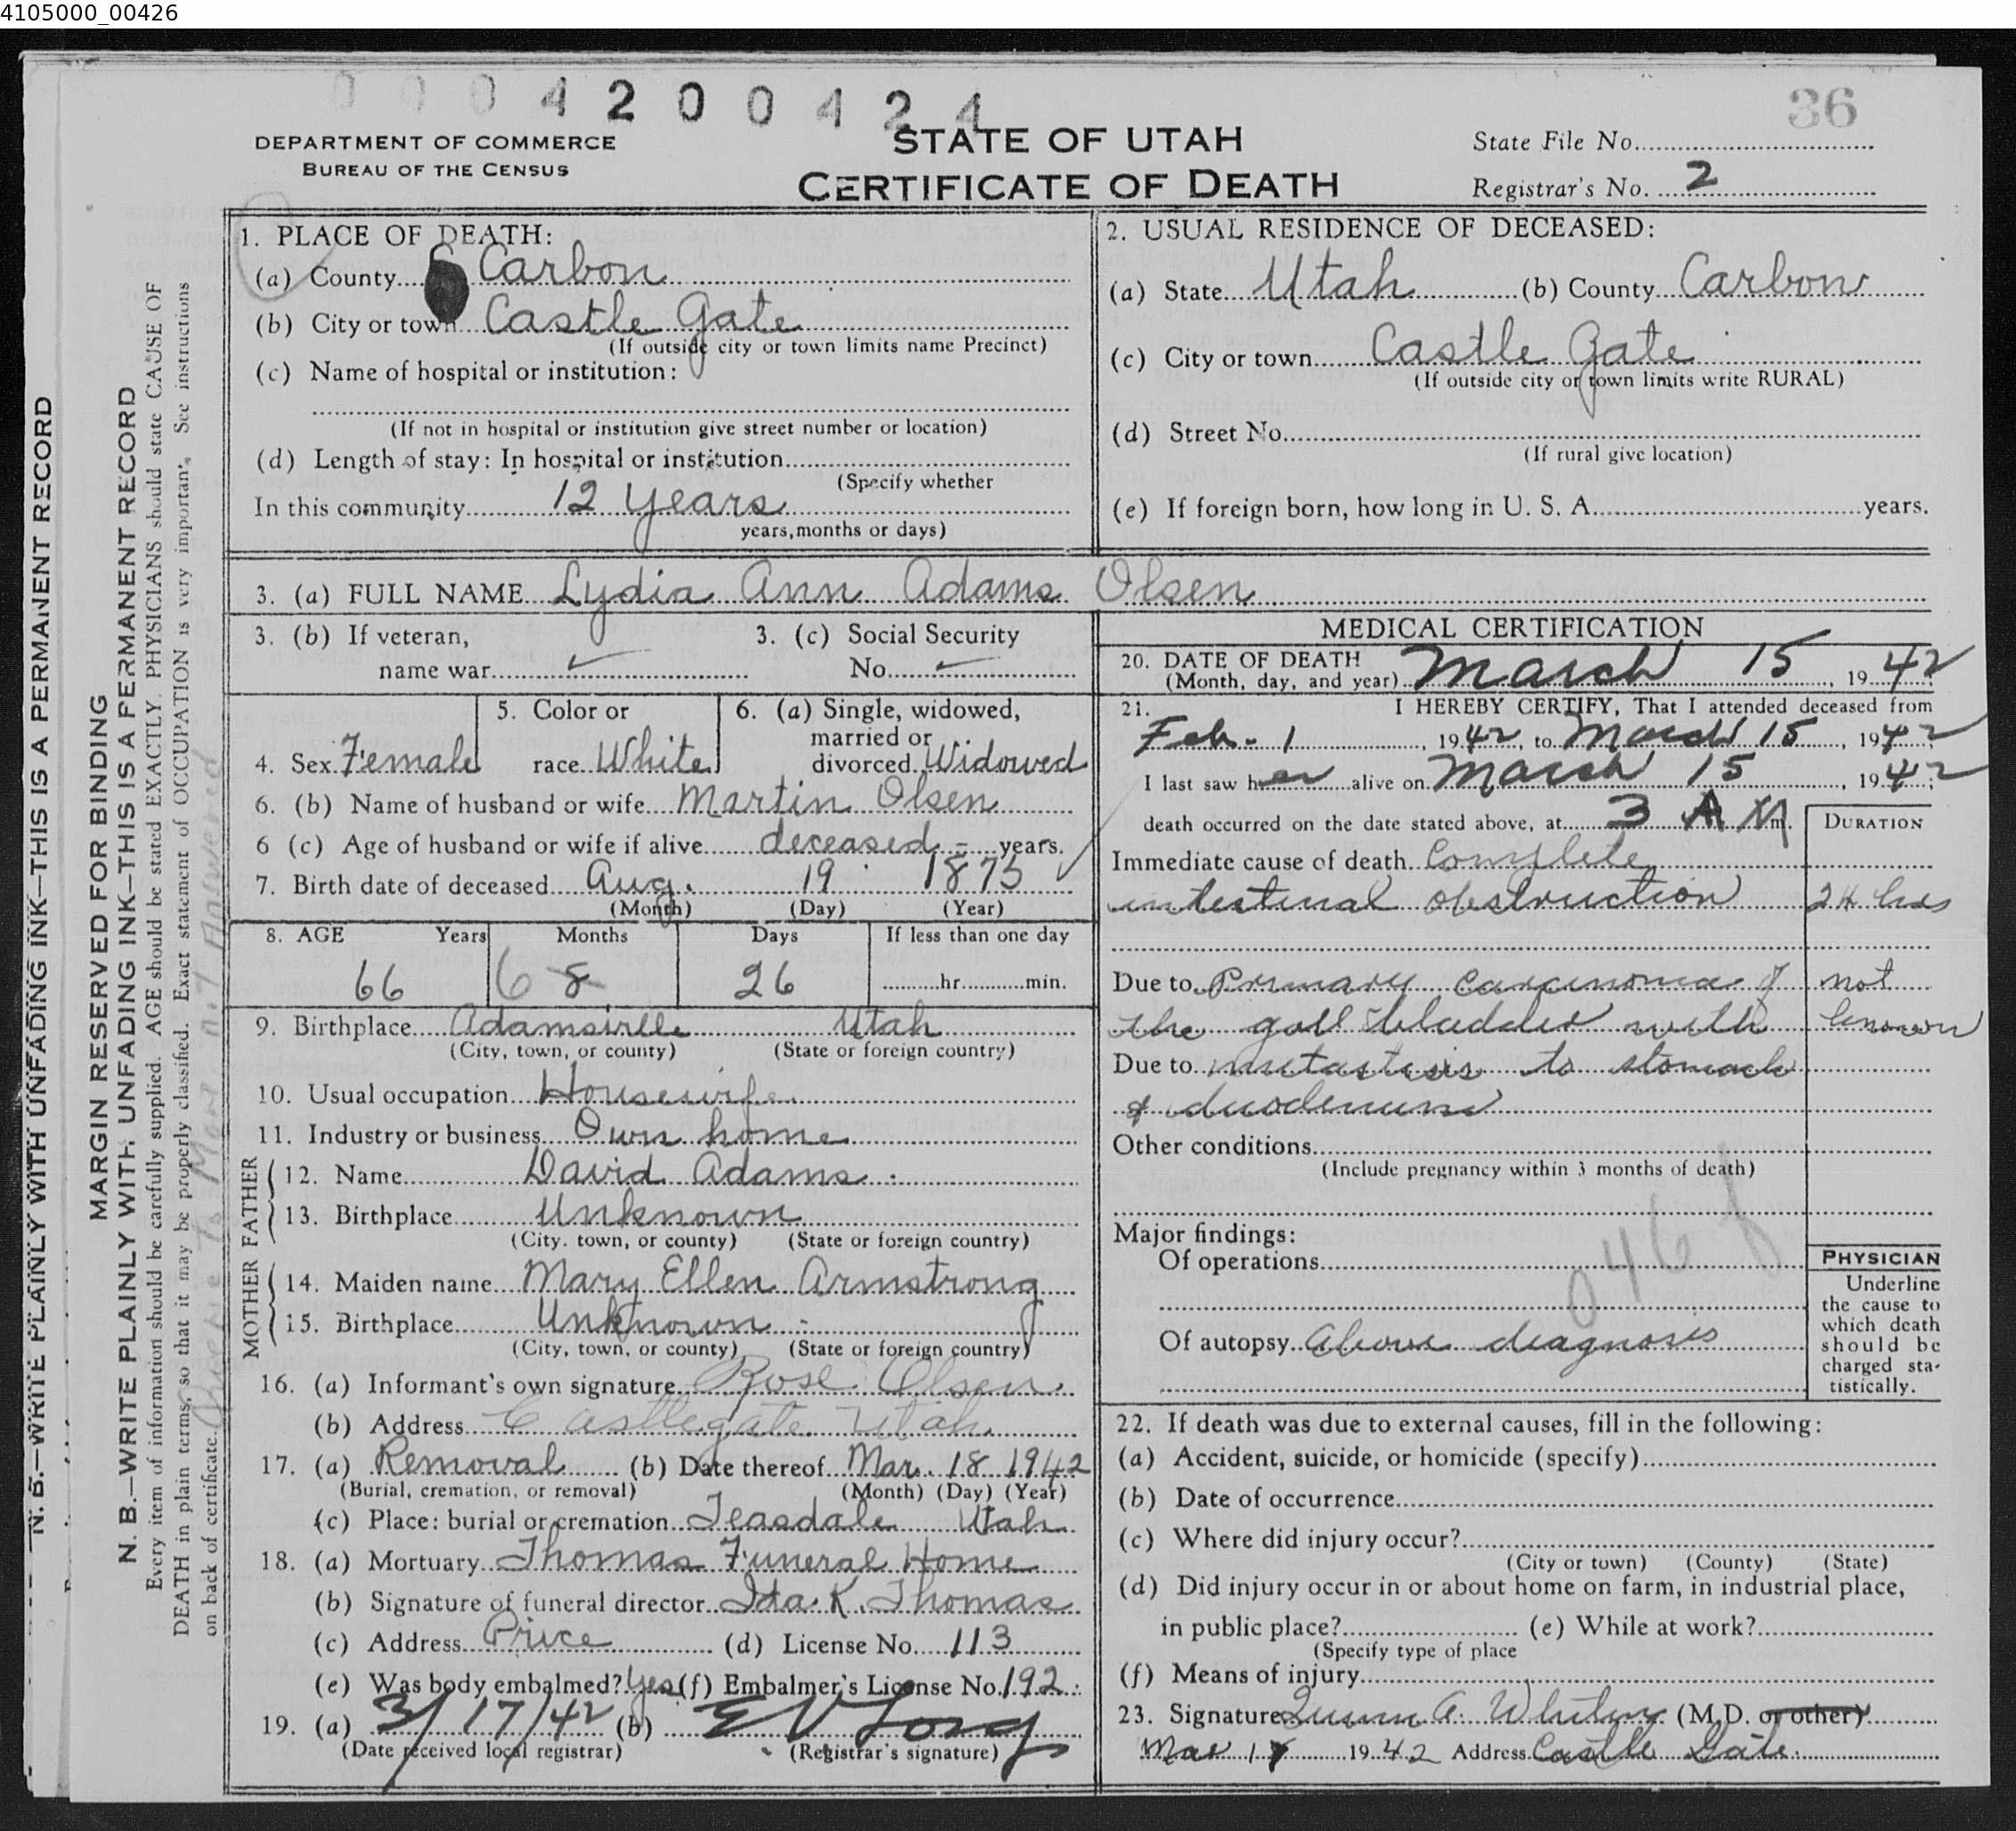 4105000_00426
0 0 0 4 2 0 0 4 2 4
36
DEPARTMENT OF COMMERCE
BUREAU OF THE CENSUS
STATE OF UTAH
CERTIFICATE OF DEATH
State File No.
Registrar's No. 2
N. B.—WRITE PLAINLY WITH UNFADING INK—THIS IS A PERMANENT RECORD
MARGIN RESERVED FOR BINDING
N. B.—WRITE PLAINLY WITH UNFADING INK—THIS IS A PERMANENT RECORD
Every item of information should be carefully supplied. AGE should be stated EXACTLY. PHYSICIANS should state CAUSE OF
DEATH in plain terms, so that it may be properly classified. Exact statement of OCCUPATION is very important. See instructions
on back of certificate.
1. PLACE OF DEATH:
(a) County Carbon
(b) City or town Castle Gate
(If outside city or town limits name Precinct)
(c) Name of hospital or institution:
(If not in hospital or institution give street number or location)
(d) Length of stay: In hospital or institution
(Specify whether
In this community 12 years
years, months or days)
2. USUAL RESIDENCE OF DECEASED:
(a) State Utah (b) County Carbon
(c) City or town Castle Gate
(If outside city or town limits write RURAL)
(d) Street No.
(If rural give location)
(e) If foreign born, how long in U. S. A. years.
3. (a) FULL NAME Lydia Ann Adams Olsen
3. (b) If veteran,
name war
3. (c) Social Security
No.
4. Sex Female
5. Color or
race White
6. (a) Single, widowed,
married or
divorced Widowed
6. (b) Name of husband or wife Martin Olsen
6 (c) Age of husband or wife if alive deceased - years.
7. Birth date of deceased Aug. 19 1875
(Month) (Day) (Year)
8. AGE Years Months Days If less than one day
66 6 8 26 hr. min.
9. Birthplace Adamsville Utah
(City, town, or county) (State or foreign country)
10. Usual occupation Housewife
11. Industry or business Own home
FATHER
12. Name David Adams
13. Birthplace Unknown
(City, town, or county) (State or foreign country)
MOTHER
14. Maiden name Mary Ellen Armstrong
15. Birthplace Unknown
(City, town, or county) (State or foreign country)
16. (a) Informant's own signature Rose Olsen
(b) Address Castlegate Utah
17. (a) Removal (b) Date thereof Mar. 18 1942
(Burial, cremation, or removal) (Month) (Day) (Year)
(c) Place: burial or cremation Teasdale Utah
18. (a) Mortuary Thomas Funeral Home
(b) Signature of funeral director Ida K. Thomas
(c) Address Price (d) License No. 113
(e) Was body embalmed? Yes (f) Embalmer's License No. 192
19. (a) 3/17/42 (b) E V Long
(Date received local registrar) (Registrar's signature)
MEDICAL CERTIFICATION
20. DATE OF DEATH
(Month, day, and year) March 15, 1942
21. I HEREBY CERTIFY, That I attended deceased from
Feb. 1, 1942, to March 15, 1942
I last saw her alive on March 15, 1942;
death occurred on the date stated above, at 3 A M m.
DURATION
Immediate cause of death Complete
intestinal obstruction 24 hrs
Due to Primary carcinoma of not
the gall bladder with known
Due to mutastisis to stomach
& duodenum
Other conditions
(Include pregnancy within 3 months of death)
046 f
Major findings:
Of operations
Of autopsy Above diagnosis
PHYSICIAN
Underline
the cause to
which death
should be
charged sta-
tistically.
22. If death was due to external causes, fill in the following:
(a) Accident, suicide, or homicide (specify)
(b) Date of occurrence
(c) Where did injury occur?
(City or town) (County) (State)
(d) Did injury occur in or about home on farm, in industrial place,
in public place? (e) While at work?
(Specify type of place
(f) Means of injury
23. Signature Quinn A. Whiting (M.D. or other)
Mar 17 1942 Address Castle Gate